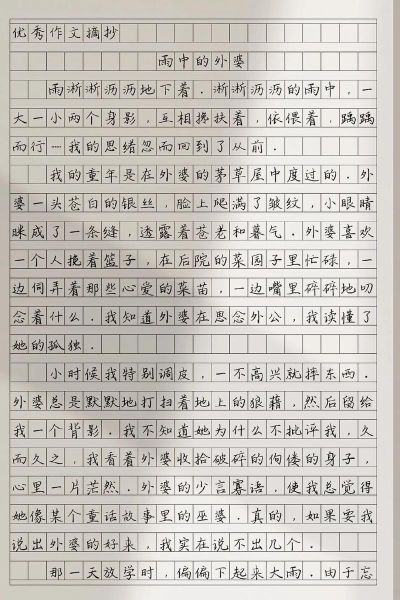 优秀作文摘抄
雨中的外婆
雨淅淅沥沥地下着.淅淅沥沥的雨中,一
大一小两个身影,互相搀扶着,依偎着,踽踽
而行…我的思绪忽而回到了从前.
我的童年是在外婆的茅草屋中度过的.外
婆一头苍白的银丝,脸上爬满了皱纹,小眼睛
眯成了一条缝,透露着苍老和暮气.外婆喜欢
一个人挽着篮子,在后院的菜园子里忙碌,一
边伺弄着那些心爱的菜苗,一边嘴里碎碎地叨
念着什么.我知道外婆在思念外公,我读懂了
她的孤独.
小时候我特别调皮,一不高兴就摔东西.
外婆总是默默地打扫着地上的狼藉,然后留给
我一个背影.我不知道她为什么不批评我,久
而久之,我看着外婆收拾破碎的佝偻的身子,
心里一片茫然.外婆的少言寡语,使我总觉得
她像某个童话故事里的巫婆.真的,如果要我
说出外婆的好来,我实在说不出几个.
那一天放学时,偏偏下起来大雨.由于忘